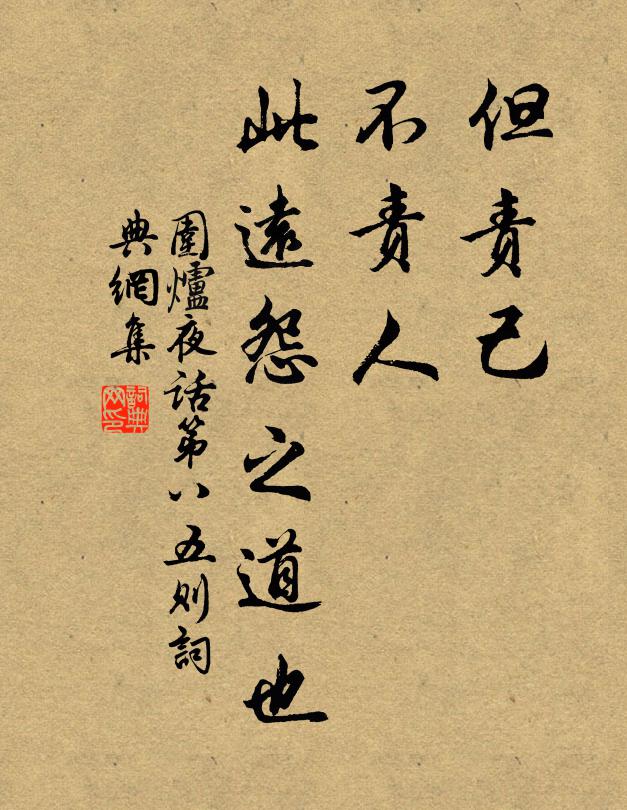 但責己
不責人
此遠怨之道也
圍爐夜话第八五则詞
典網集
詞典
网印